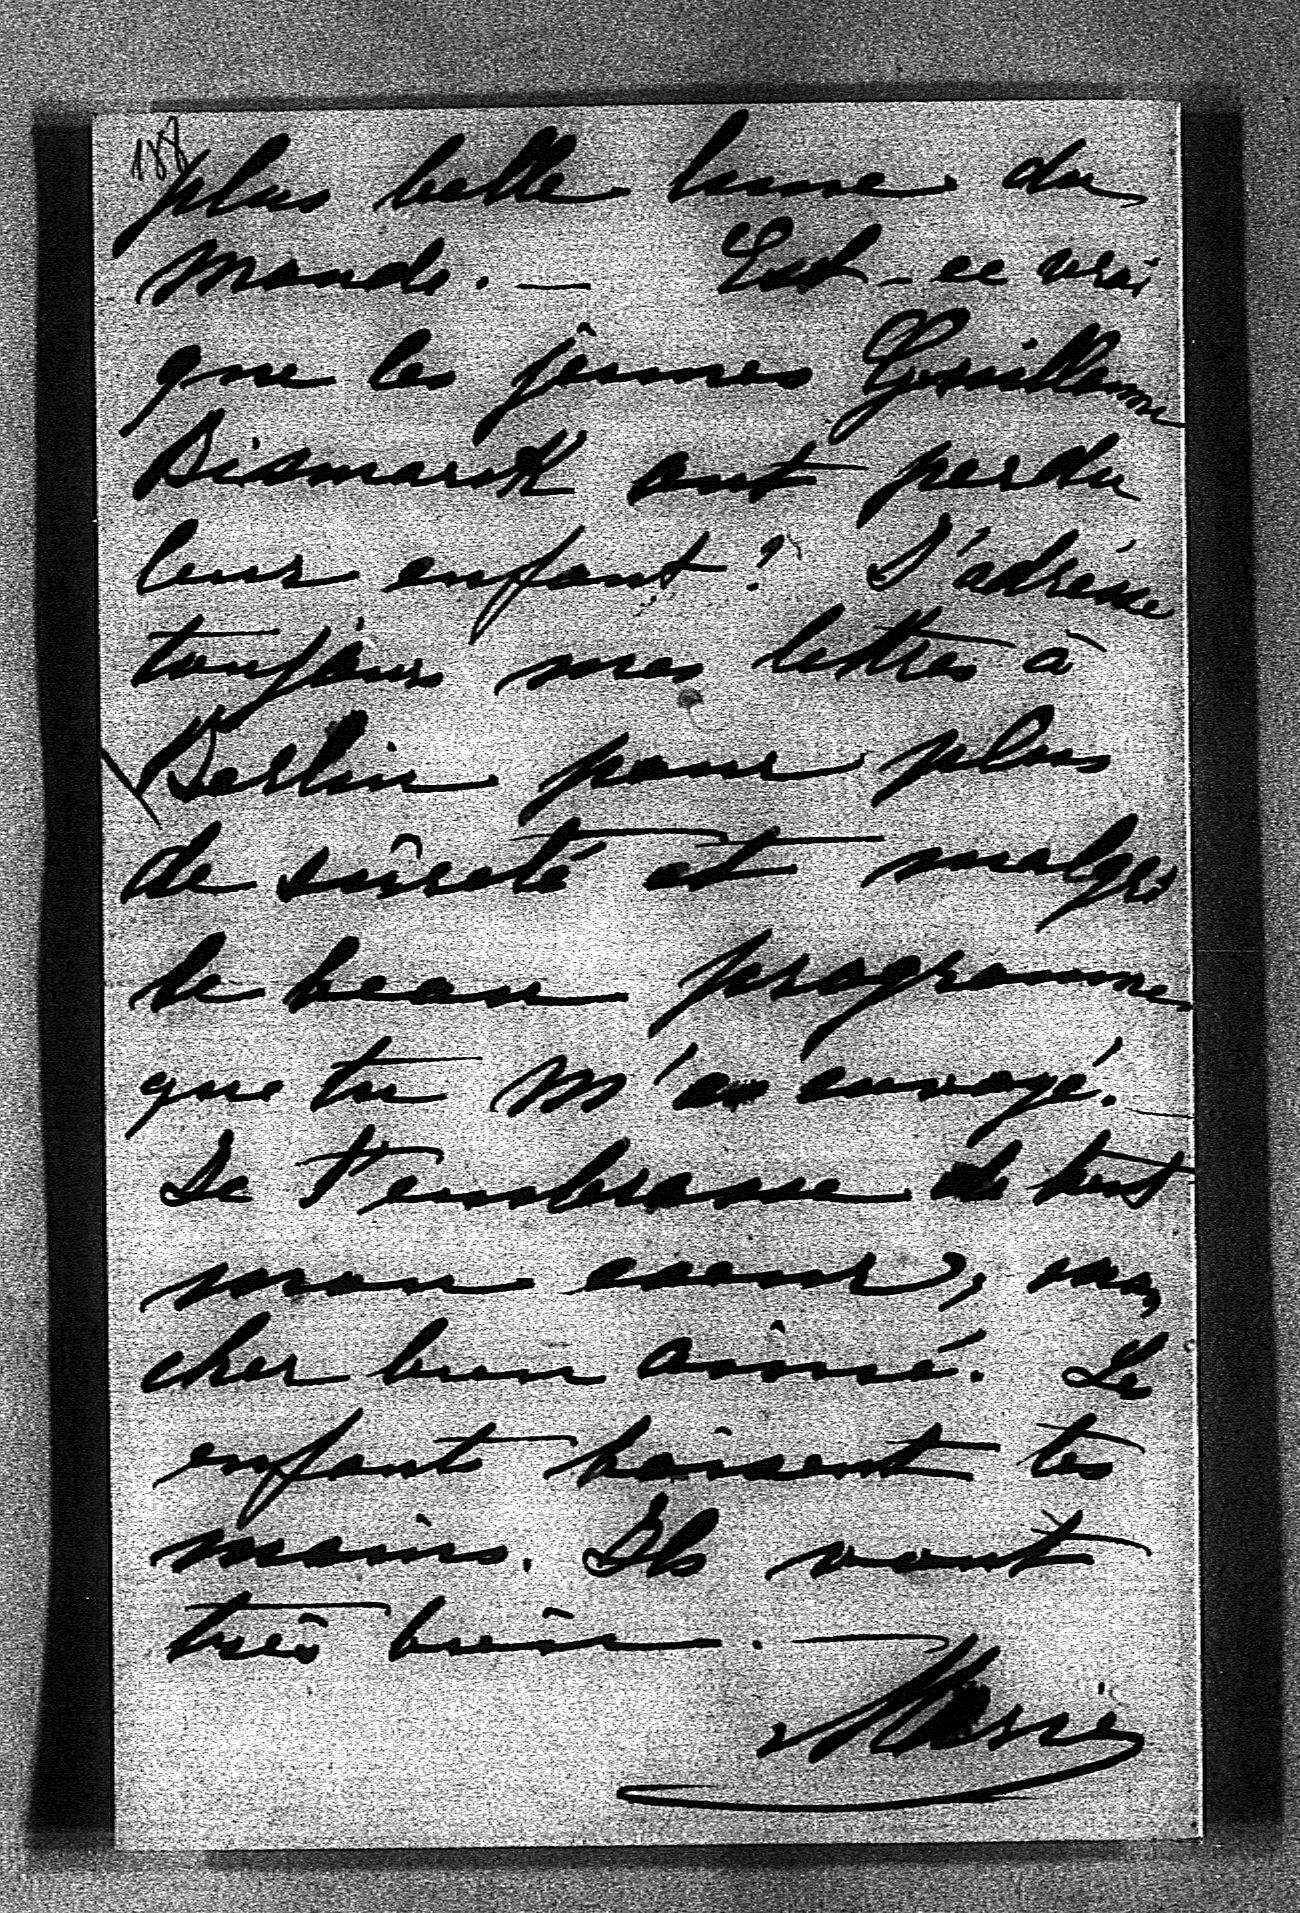 188
plus belle lune du
monde. — Est-ce vrai
que les jeunes Guillaume
Bismarck ont perdu
leur enfant? J'adresse
toujours mes lettres à
Berlin pour plus
de sûreté et malgré
le beau programme
que tu m'as envoyé.
Je t'embrasse de tout
mon coeur, mon
cher bien aimé. Les
enfants baisent tes
mains. Ils vont
très bien. —
Marie